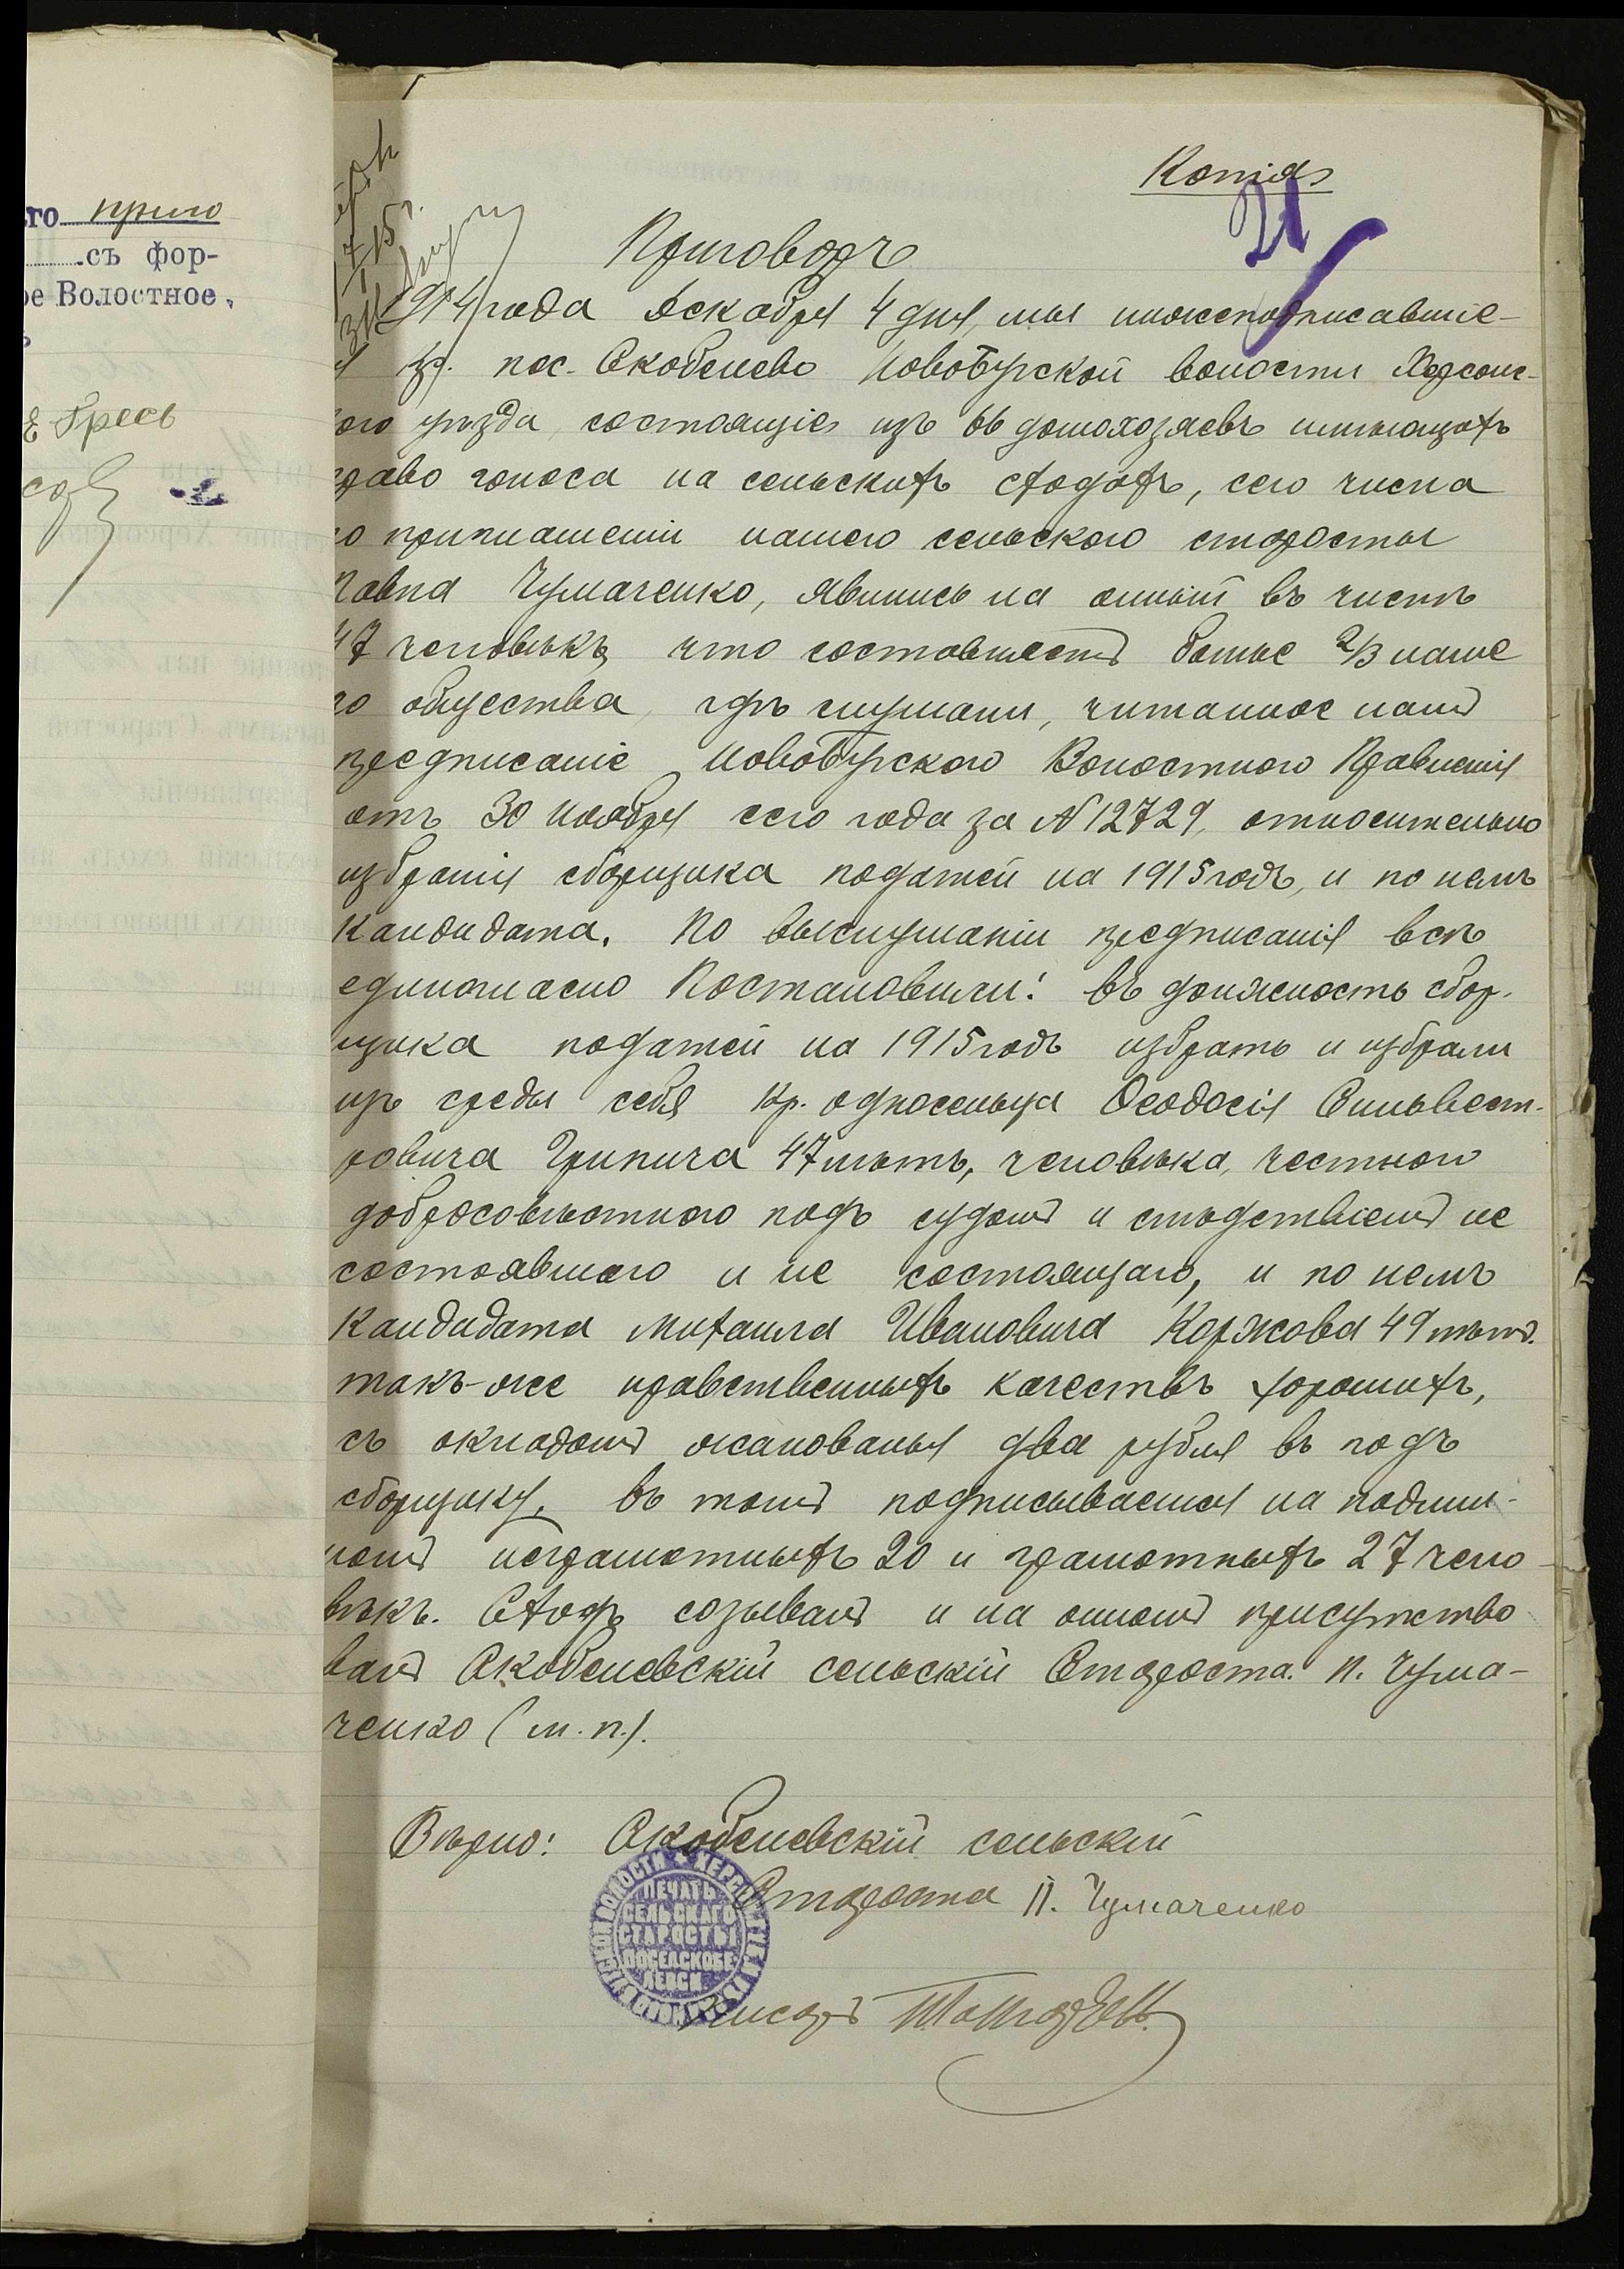 го прило
съ фор-
ое Волостное,
Копія
21
Приговоръ
1914 года Декабря 4 дня, мы нижеподписавшіе-
я кр. пос. Скобелево Новобугской волости Херсонс-
ого уѣзда, состоящіе изъ 66 домохозяевъ имѣющихъ
право голоса на сельскихъ сходахъ, сего числа
по приглашеніи нашего сельского старосты
Павла Чумаченко, явились на оный въ числѣ
47 человѣкъ что составляетъ болѣе 2/3 наше
го общества, гдѣ слушали, читанное намъ
предписаніе Новобугского Волостного Правленія
отъ 30 Ноября сего года за № 12729, относительно
избранія сборщика податей на 1915 годъ, и по немъ
кандидата. По выслушаніи предписанія всѣ
единогласно Постановили: въ должность сбор-
щика податей на 1915 годъ избрать и избрали
изъ среды себя кр. односельца Ѳеодосія Сильвест-
ровича Грипича 47 лѣтъ, человѣка, честного
добросовѣстного подъ судомъ и слѣдствіемъ не
состоявшаго и не состоящаго, и по немъ
Кандидата Михаила Ивановича Коржова 49 лѣтъ.
такъ-же нравственныхъ качествъ хорошихъ,
съ окладомъ жалованья два рубля въ годъ
сборщику, въ томъ подписываемся на подлин-
номъ неграмотныхъ 20 и грамотныхъ 27 чело-
вѣкъ. Сходъ созывалъ и на ономъ присутство
валъ Скобелевскій сельскій Староста. П. Чума-
ченко (м. п.).
Вѣрно: Скобелевскій сельскій
Староста П. Чумаченко
ПЕЧАТЬ
СЕЛЬСКАГО
СТАРОСТЫ
ПОС. СКОБЕ-
ЛЕВСК.
Писарь